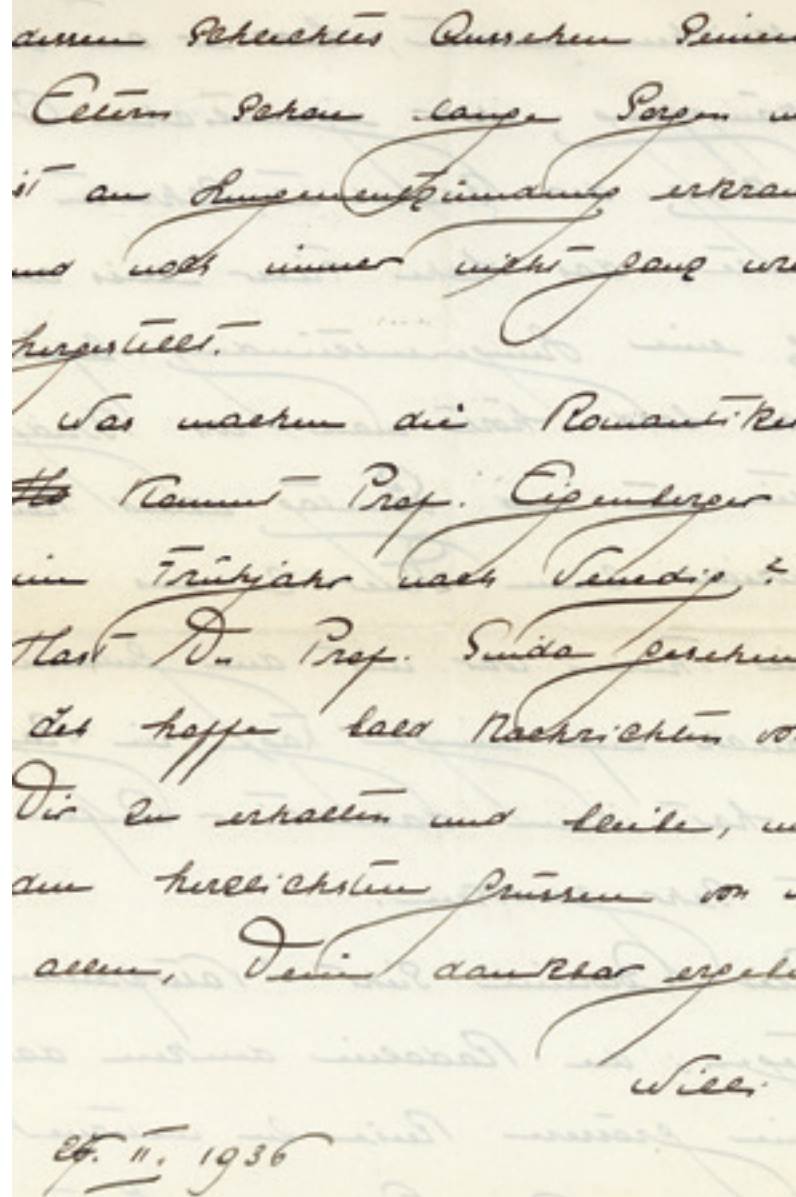 dessen schlechtes Aussehen seinen
Eltern schon lange Sorgen
ist an Lungenentzündung erkran
und noch immer nicht ganz wie
hergestellt.
Was machen die Romantiker
Kommt Prof. Eigenberger
im Frühjahr nach Venedig?
Hast Du Prof. Suida gesehen
Ich hoffe bald Nachrichten von
Dir zu erhalten und bleibe, m
den herzlichsten Grüssen von u
allen, Dein dankbar ergebe
Willi
II. 1936